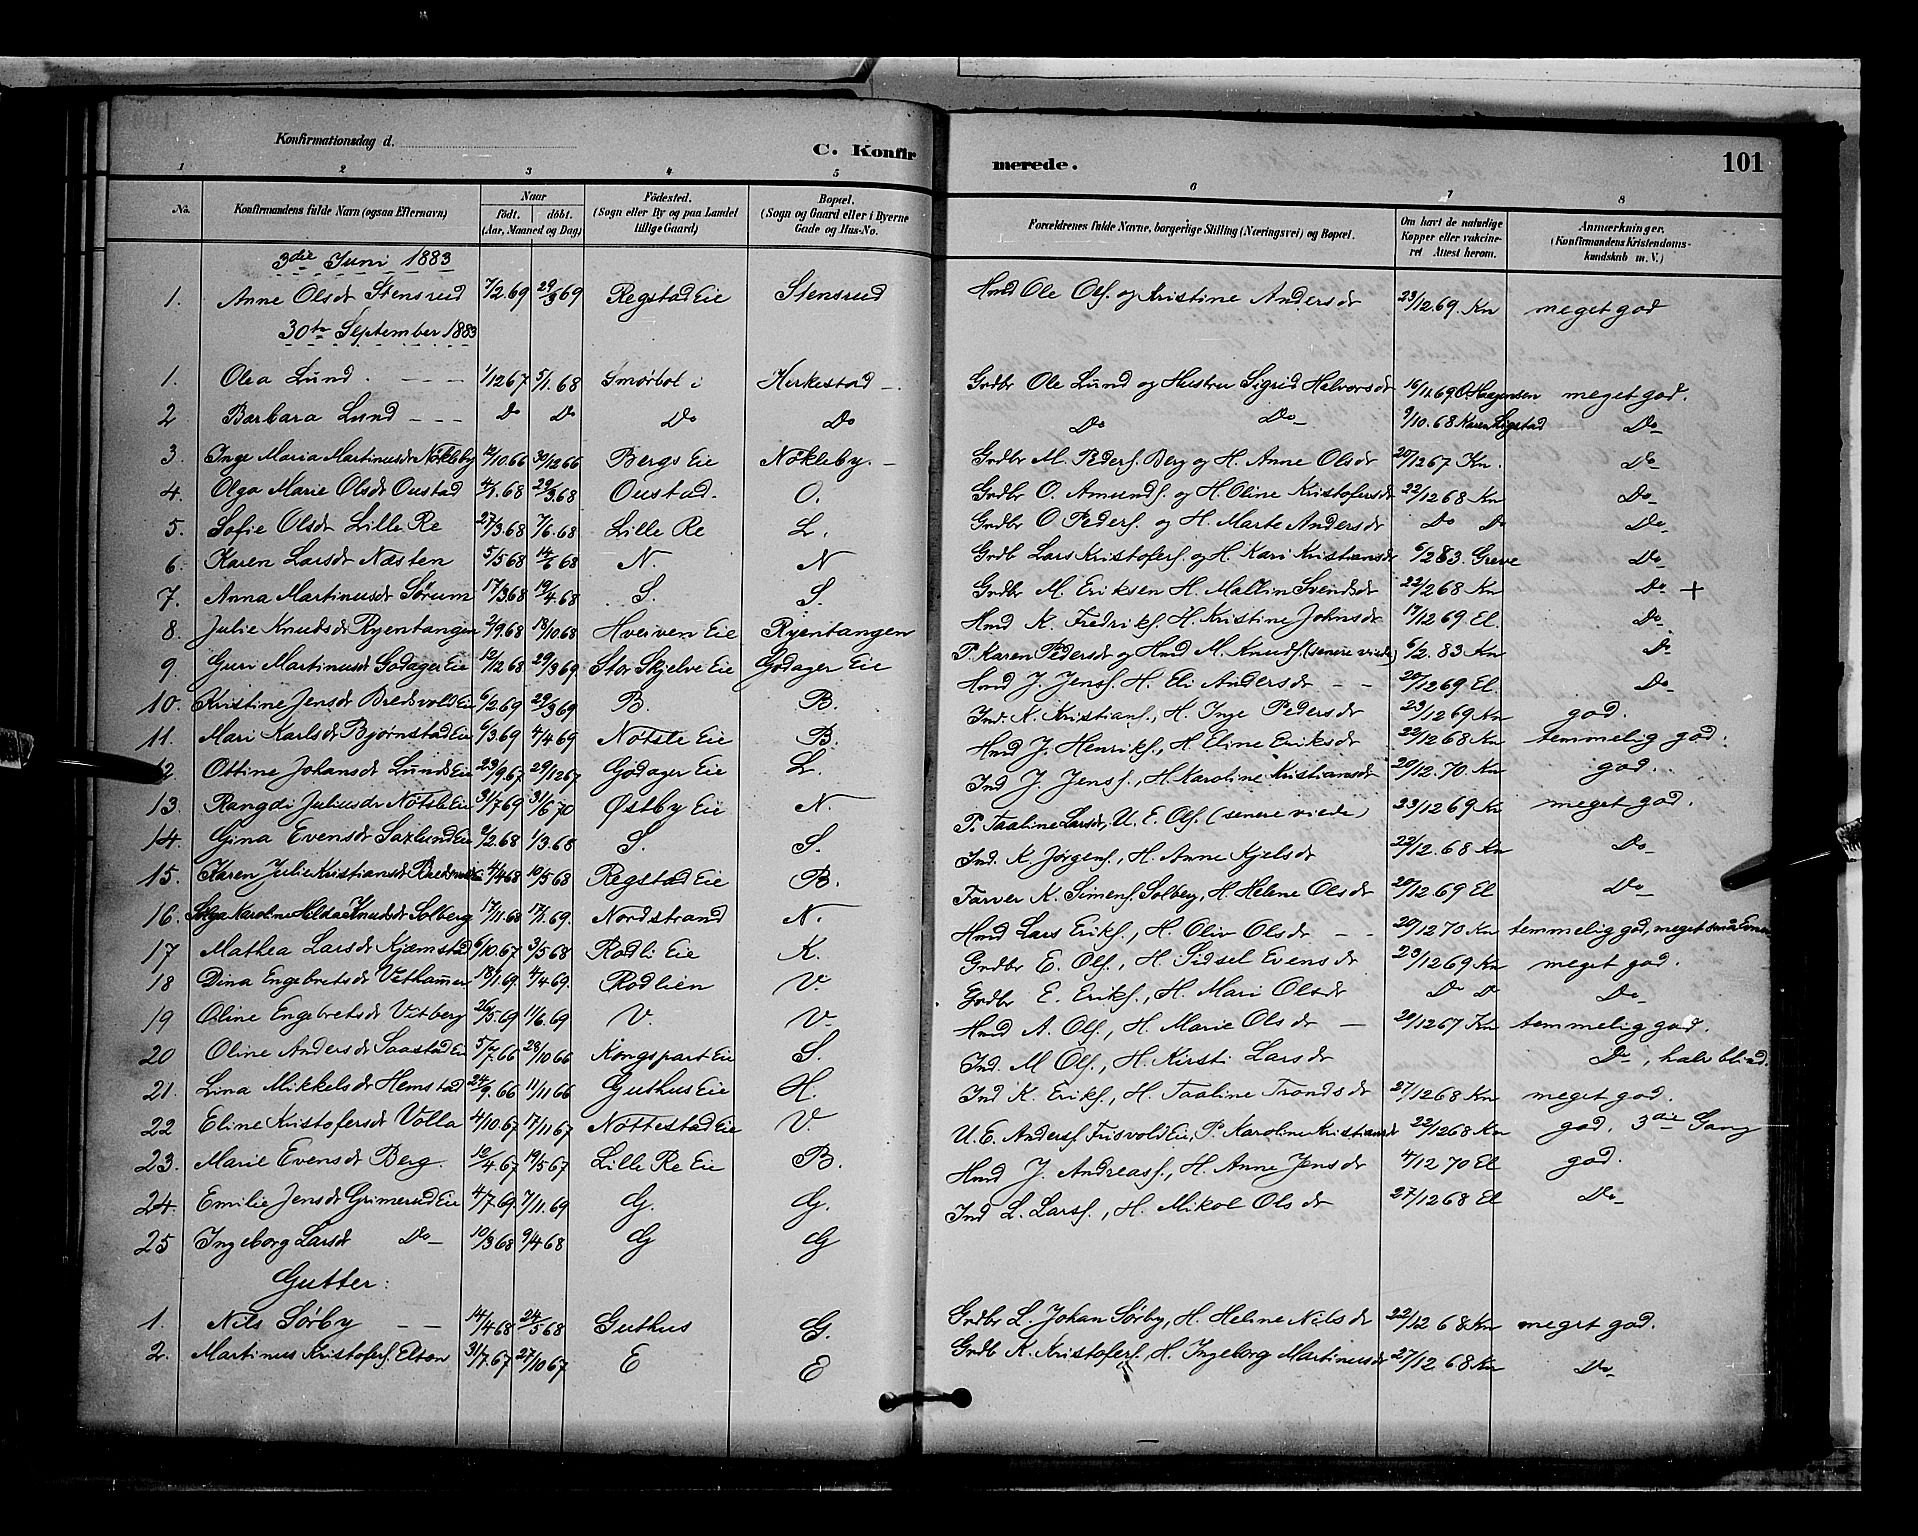 Konfirmationsdag d.
C. Konfirmerede.
101
1 2 3 4 5 6 7 8
No. Konfirmandens fulde Navn (ogsaa Efternavn) Naar født. døbt. (Aar, Maaned og Dag) Fødested. (Sogn eller By og paa Landet tillige Gaard) Bopæl. (Sogn og Gaard eller i Byerne Gade og Hus-No. Forældrenes fulde Navne, borgerlige Stilling (Næringsvei) og Bopæl. Om havt de naturlige Kopper eller vakcineret Attest herom. Anmærkninger. (Konfirmandens Kristendomskundskab m. V.)
3die Juni 1883
1. Anne Olsdt Stensrud 7/2 69 29/3 69 Regstad Eie Stensrud Hmd Ole Ols. og Kristine Andersdt 23/12 69. Kn meget god
30te September 1883
1. Olea Lund. 1/12 67 5/1. 68 Smørbøl i Kirkestad Grdbr Ole Lund og Hustru Sigrid Halvorsdt 16/12 69 O Haagensen meget god.
2 Barbara Lund Do Do Do Do Do Do 9/10. 68 Karen Ligstad Do
3. Inge Maria Martinusdt Nökleby 12/10 66 30/12 66 Bergs Eie Nökleby. Grdbr M. Peders. Berg og H. Anne Olsdt 20/12 67 Kn. Do
4. Olga Marie Olsdt Oustad 4/1. 68 29/3. 68 Oustad. O. Grdbr O. Amunds. og H. Oline Kristofersdt 22/12 68 Kn Do
5. Sofie Olsdt Lille Re 27/3. 68 7/6. 68 Lille Re L. Grdbr O Peders. og H. Marte Andersdt Do Do Do
6. Karen Larsdt Næsten 5/5 68 14/6 68 N. N Grdb Lars Kristofers. og H. Kari Kristiansdt 6/2 83. Greve Do
7. Anna Martinusdt Sörum 17/3 68 19/4. 68 S. S. Grdbr M. Eriksen H. Mallin Svendsdt 22/12 68 Kn Do +
8. Julie Knudsdt Ryentangen 2/9. 68 18/10. 68 Hveiven Eie Ryentangen Hmd K. Fredriks. H. Kristine Johnsdt 17/12 69 El Do
9. Guri Martinusdt Godager Eie 12/12 68 29/3 69 Stor Skjelve Eie Godager Eie P. Karen Pedersdt og Hmd M. Knuds. (senere viede) 6/2. 83 Kn Do
10. Kristine Jensdt Bredvold Eie 6/2 69 29/3 69 B. B. Hmd J. Jens. H. Eli Andersdt 20/12 69 El. Do
11. Mari Karlsdt Bjørnstad Eie 6/3 69 4/4 69 Nötsle Eie B. Ind. K. Kristians., H. Inge Pedersdt 23/12 69 Kn god.
12. Ottine Johansdt Lunds Eie 23/9. 67 29/12 67 Godager Eie L. Hmd J. Henriks., H. Eline Eriksdt 22/12 68 Kn temmelig god.
13. Rangdi Juliusdt Nötsle Eie 31/7 69 31/6 70 Østby Eie N. Ind J. Jens., H. Karoline Kristiansdt 20/12. 70 Kn god.
14. Gina Evensdt Saxlund Eie 2/2. 68 1/3. 68 S. S. P. Taaline Larsdt, U. E. Ols. (senere viede) 23/12 69 Kn meget god.
15. Karen Julie Kristiansdt 4/4 68 10/5 68 Regstad Eie B. Ind. K. Jørgens., H. Anne Kjelsdt 22/12. 68 Kn Do
16. Karoline Hilda Knudsdt Solberg 17/11. 68 17/1. 69. Nordstrand N. Farver K. Simens. Solberg, H. Helene Olsdt 20/12 69 El Do
17 Mathea Larsdt Kjæmstad 6/10. 67 3/5 68 Rodli Eie K. Hmd Lars Eriks., H. Oliv Olsdt 20/12 70 Kn temmelig god, meget små Evner
18 Dina Engebretsdt Vethammer 18/1. 69. 4/4 69. Rodlien V. Grdbr E. Ols., H. Sidsel Evensdt 23/12 69 Kn meget god.
19 Oline Engebretsdt Vitberg 26/5. 69 11/6. 69 V. V Grdbr E. Eriks., H. Mari Olsdt Do Do Do
20 Oline Andersdt Saastad Eie 5/7. 66 28/10 66 Kongspart Eie S. Hmd A. Ols., H. Marie Olsdt 20/12 67 Kn temmelig god.
21. Lina Mikkelsdt Hemstad 24/9. 66 11/11 66 Guthus Eie H. Ind. M Ols., H. Kirsti Larsdt Do, halv blind.
22 Eline Kristofersdt Volla 4/10. 67 17/11 67 Nöttestad Eie V. Ind K. Eriks., H. Taaline Trondsdt 27/12 68 Kn meget god.
23. Marie Evensdt Berg. 12/4. 67 19/5 67 Lille Re Eie B. U. E. Anders. Frisvold Eie, P. Karoline Kristiansdt 22/12 68 Kn god, 3die Gang
24. Emilie Jensdt Grimerud Eie 4/7. 69. 7/11. 69 G. G. Hmd J. Andreas., H. Anne Jensdt 4/12 70 El god.
25 Ingeborg Larsdt Do 10/3 68 9/4 68 G G Ind L. Lars., H. Mikol Olsdt 27/12 68 El Do
Gutter:
1. Nils Sørby 14/4 68 24/5 68 Guthus G. Grdbr L. Johan Sørby, H. Helene Nilsdt 22/12 68 Kn meget god.
2. Martinus Kristofers. Elton 31/7. 67 27/10 67 E E Grdb K. Kristofers., H. Ingeborg Martinusdt 27/12. 68 Kn Do